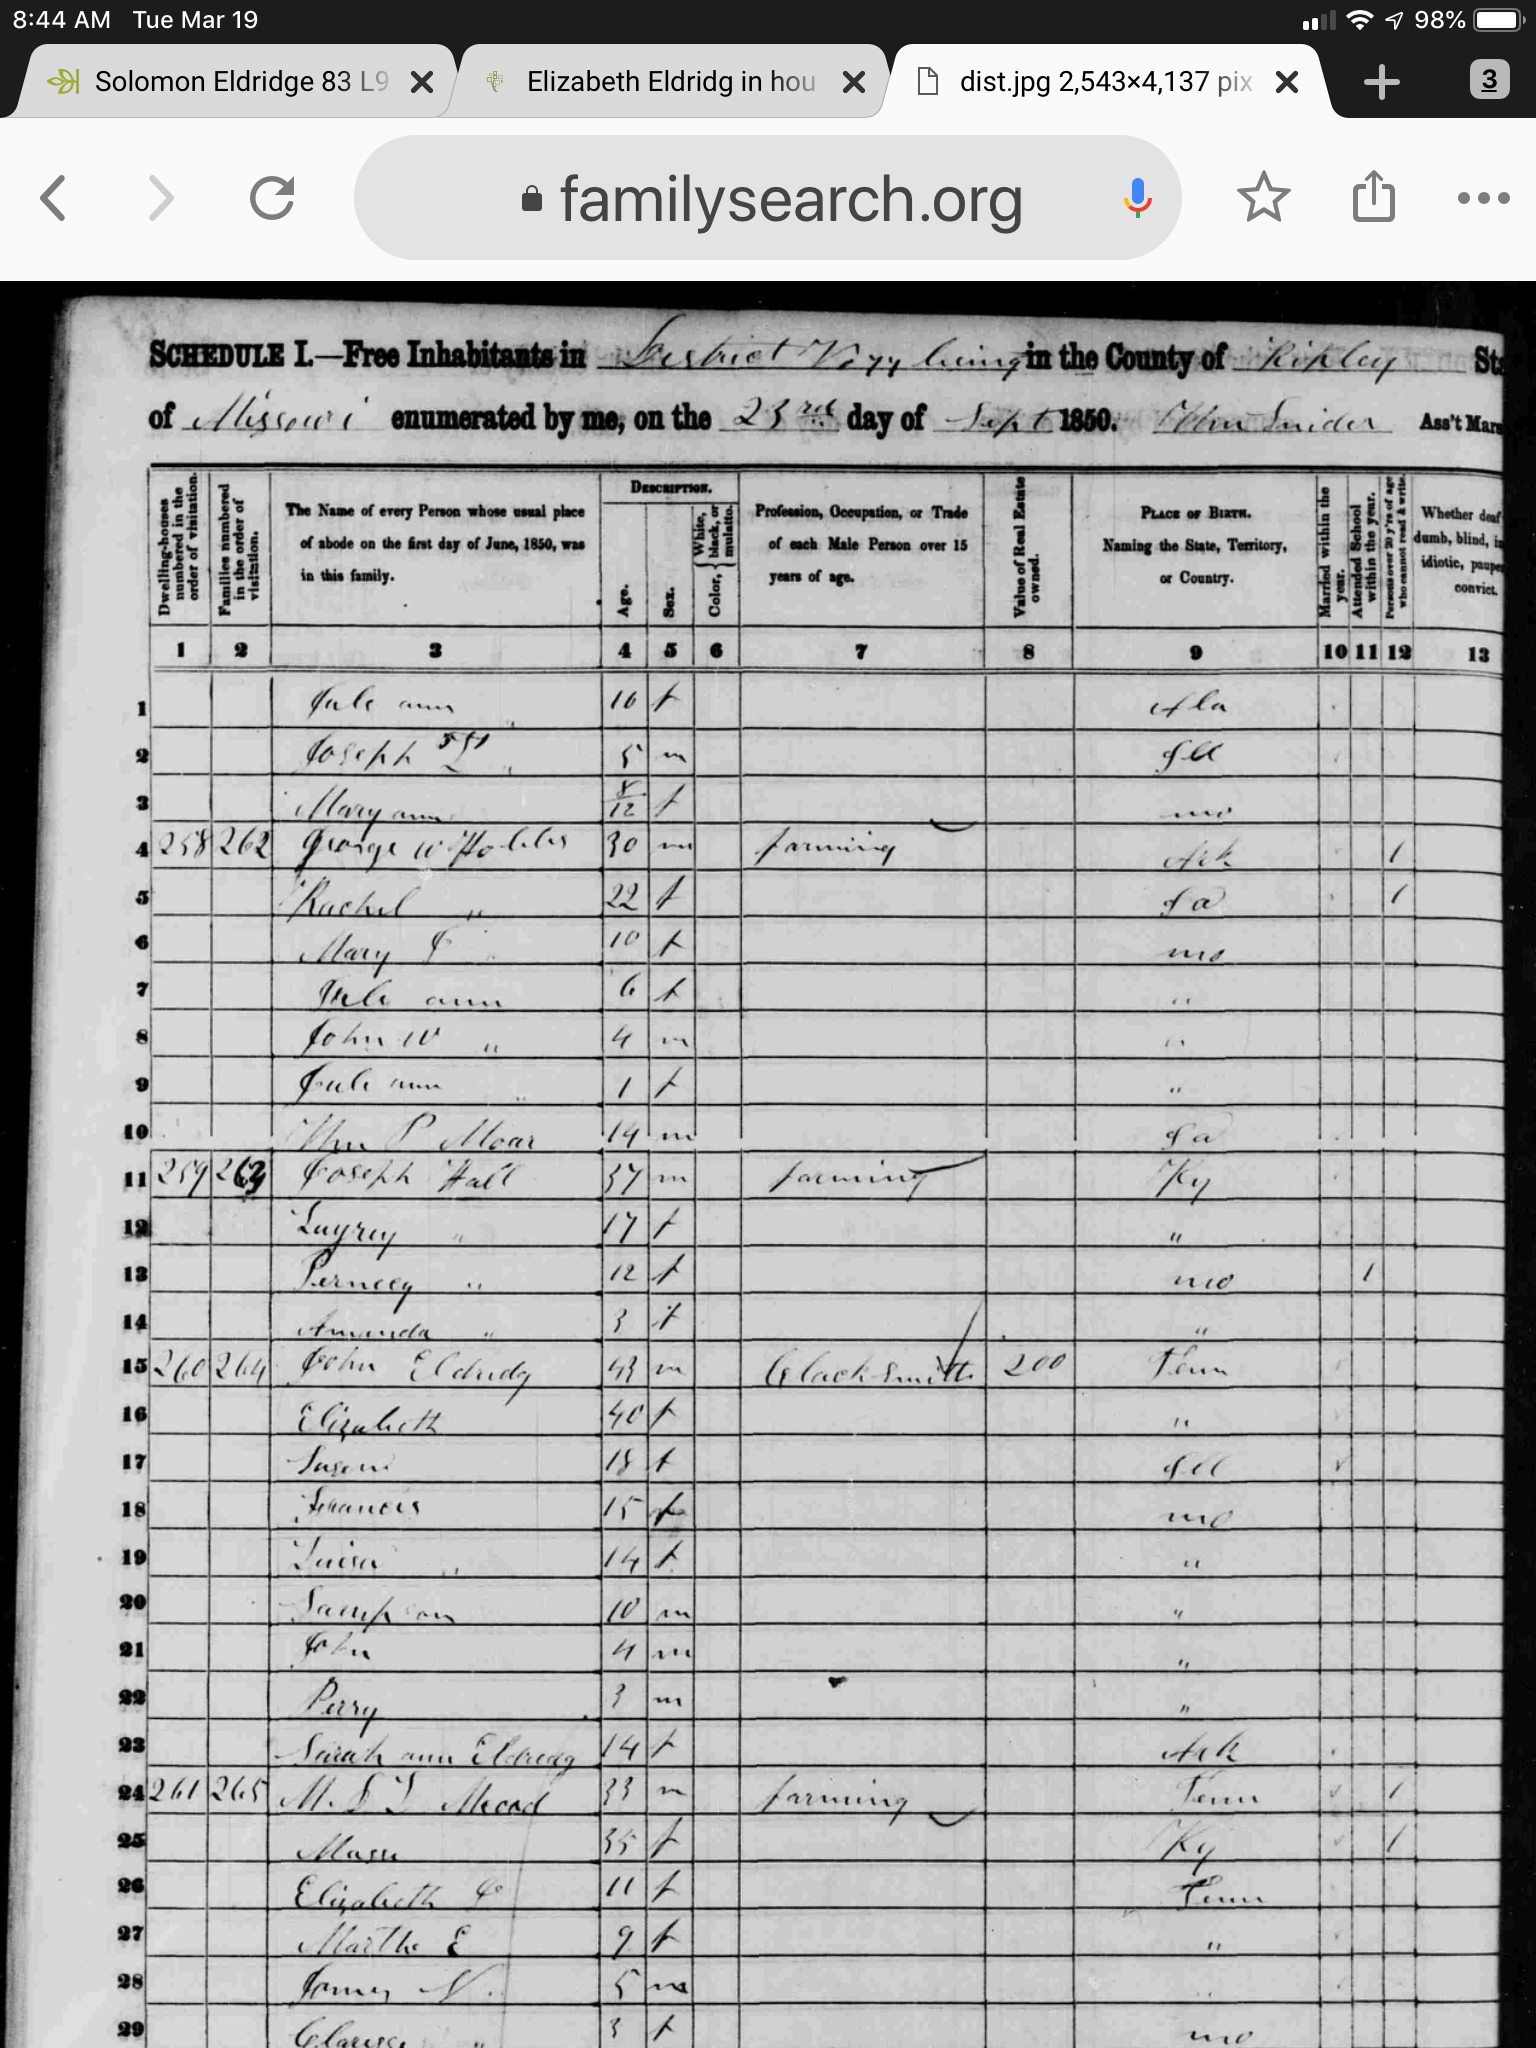 8:44 AM Tue Mar 19 98%
Solomon Eldridge 83 L9
Elizabeth Eldridg in hou
dist.jpg 2,543×4,137 pix
3
familysearch.org
SCHEDULE I.—Free Inhabitants in District being in the County of Ripley Sta
of Missouri enumerated by me, on the 23rd day of Sept 1850. Snider Ass't Mars
Dwelling-houses numbered in the order of visitation.
Families numbered in the order of visitation.
The Name of every Person whose usual place of abode on the first day of June, 1850, was in this family.
DESCRIPTION.
Age.
Sex.
Color, { White, black, or mulatto.
Profession, Occupation, or Trade of each Male Person over 15 years of age.
Value of Real Estate owned.
PLACE OF BIRTH. Naming the State, Territory, or Country.
Married within the year.
Attended School within the year.
Persons over 20 y'rs of age who cannot read & write.
Whether deaf dumb, blind, in idiotic, paupe convict.
1 2 3 4 5 6 7 8 9 10 11 12 13
1 ann 16 f Ala
2 Joseph 5 m Ill
3 Mary ann 8/12 f mo
4 258 262 George W Hobbs 30 m farming Ark 1
5 Rachel " 22 f Ga 1
6 Mary J " 10 f mo
7 ann 6 f "
8 John W " 4 m "
9 ann " 1 f "
10 Wm P Moar 14 m Ga
11 259 263 Joseph Hall 37 m farming Ky
12 " 17 f "
13 " 12 f mo 1
14 Amanda " 3 f "
15 260 264 John Eldridg 43 m Blacksmith 200 Tenn
16 Elizabeth 40 f "
17 Susan 18 f Ill
18 Francis 15 f mo
19 Luisa " 14 f "
20 Sampson 10 m "
21 John 4 m "
22 Perry 3 m "
23 Sarah ann Eldredg 14 f Ark
24 261 265 M. 33 m farming Tenn 1
25 35 f Ky 1
26 Elizabeth J 11 f Tenn
27 Martha E 9 f "
28 James N. 5 m
29 " 3 f mo